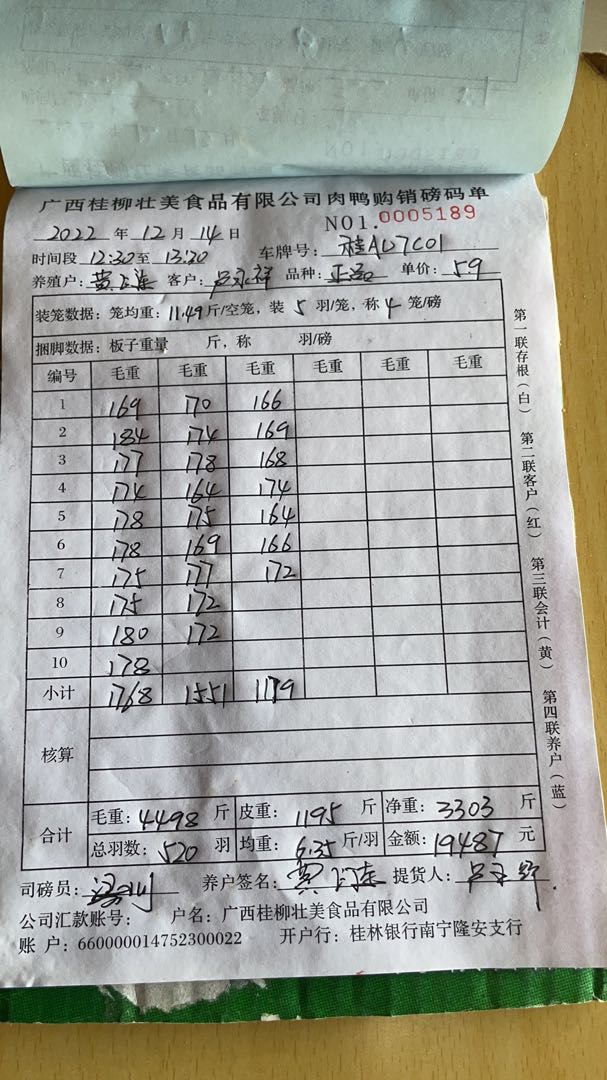 广西桂柳壮美食品有限公司肉鸭购销磅码单
NO1.0005189
2022 年 12 月 14 日
时间段 12:30 至 13:20 车牌号: 桂AU7C01
养殖户: 黄 连 客户: 卢永祥 品种: 单价: 59
装笼数据: 笼均重: 11.49 斤/空笼, 装 5 羽/笼, 称 4 笼/磅
捆脚数据: 板子重量 斤, 称 羽/磅
编号 毛重 毛重 毛重 毛重 毛重 毛重
1 169 170 166
2 184 174 169
3 177 178 168
4 174 164 174
5 178 175 164
6 178 169 166
7 175 177 172
8 175 172
9 180 172
10 178
小计 1768 1551 1179
核算
合计
毛重: 4498 斤 皮重: 1195 斤 净重: 3303 斤
总羽数: 520 羽 均重: 6.35 斤/羽 金额: 19487 元
司磅员: 养户签名: 黄 连 提货人: 卢
公司汇款账号: 户名: 广西桂柳壮美食品有限公司
账 户: 660000014752300022 开户行: 桂林银行南宁隆安支行
第一联存根(白) 第二联客户(红) 第三联会计(黄) 第四联养户(蓝)